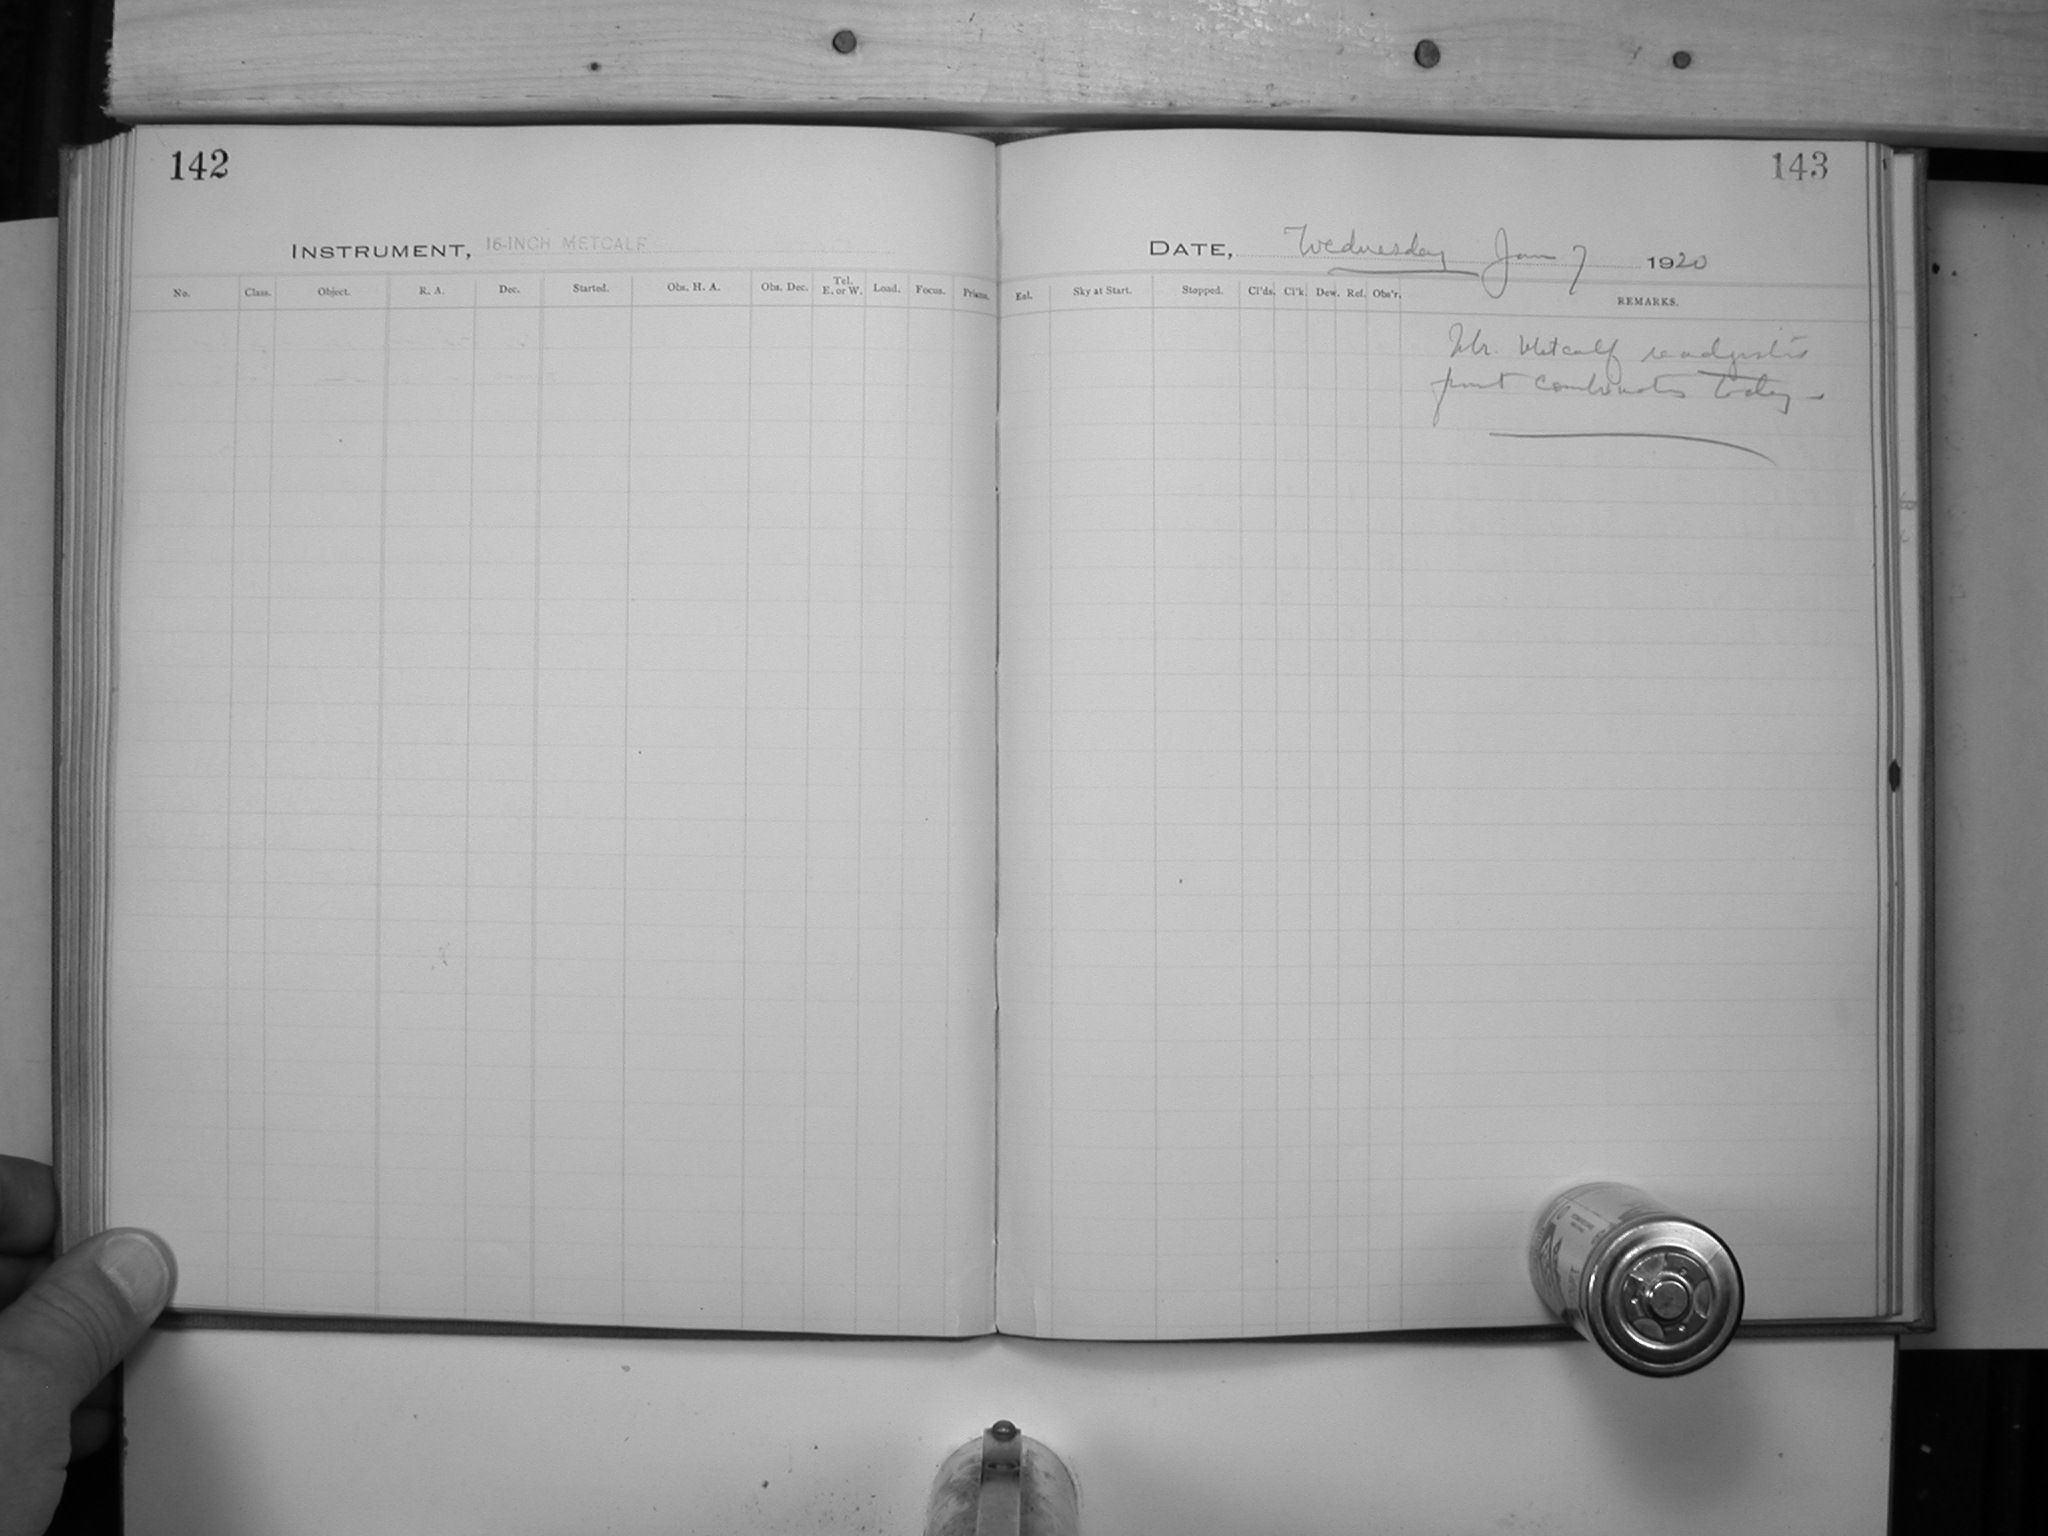 142
143
INSTRUMENT, 16-INCH METCALF
DATE, Wednesday Jan 7 1920
No. Class. Object. R. A. Dec. Started. Obs. H. A. Obs. Dec. Tel. E. or W. Load. Focus. Prisms.
Eal. Sky at Start. Stopped. Cl'ds. Cl'k. Dew. Ref. Obs'r. REMARKS.
Mr. Metcalf readjusts
front today